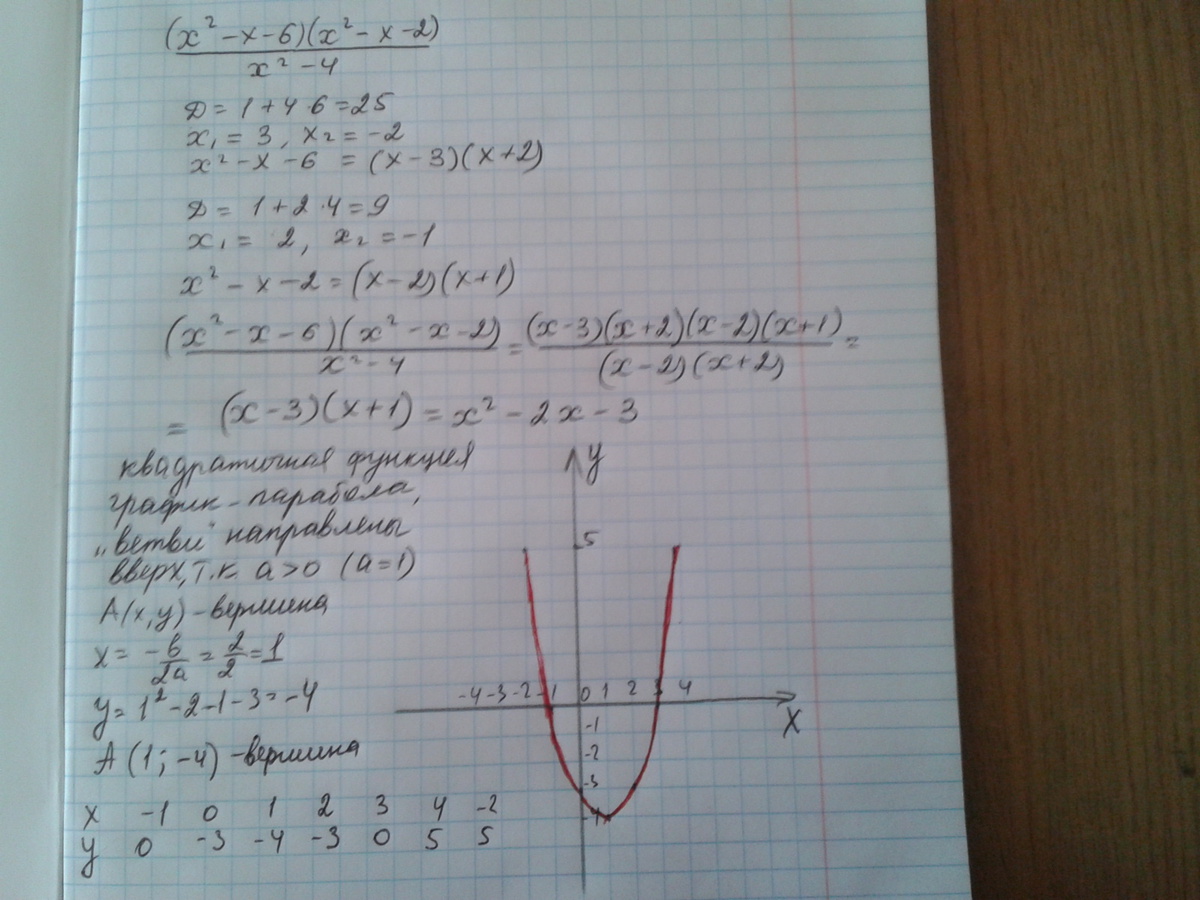 (x² - x - 6)(x² - x - 2)
x² - 4
D = 1 + 4·6 = 25
x₁ = 3, x₂ = -2
x² - x - 6 = (x - 3)(x + 2)
D = 1 + 2·4 = 9
x₁ = 2, x₂ = -1
x² - x - 2 = (x - 2)(x + 1)
(x² - x - 6)(x² - x - 2) = (x - 3)(x + 2)(x - 2)(x + 1) =
x² - 4 (x - 2)(x + 2)
= (x - 3)(x + 1) = x² - 2x - 3
квадратичная функция
график - парабола,
"ветви" направлены
вверх, т.к. a > 0 (a = 1)
A(x, y) - вершина
x = -b/2a = 2/2 = 1
y = 1² - 2 - 1 - 3 = -4
A (1; -4) - вершина
x -1 0 1 2 3 4 -2
y 0 -3 -4 -3 0 5 5
y
5
-4 -3 -2 -1 0 1 2 3 4
x
-1
-2
-3
-4